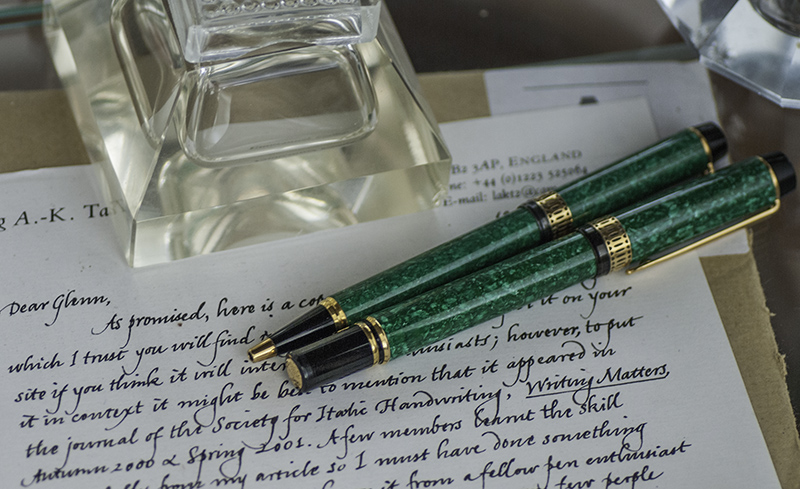 B2 3AP. ENGLAND
+44 (0)1223 525064
E-mail:
g A.-K. Ta
Dear Glenn,
As promised, here is a it on your
which I trust you will find
site if you think it will inter usiasts; however, to put
it in context it might be best to mention that it appeared in
the journal of the Society for Italic Handwriting, Writing Matters,
Autumn 2000 & Spring 2001. A few members learnt the skill
from my article so I must have done something
it from a fellow pen enthusiast
few people